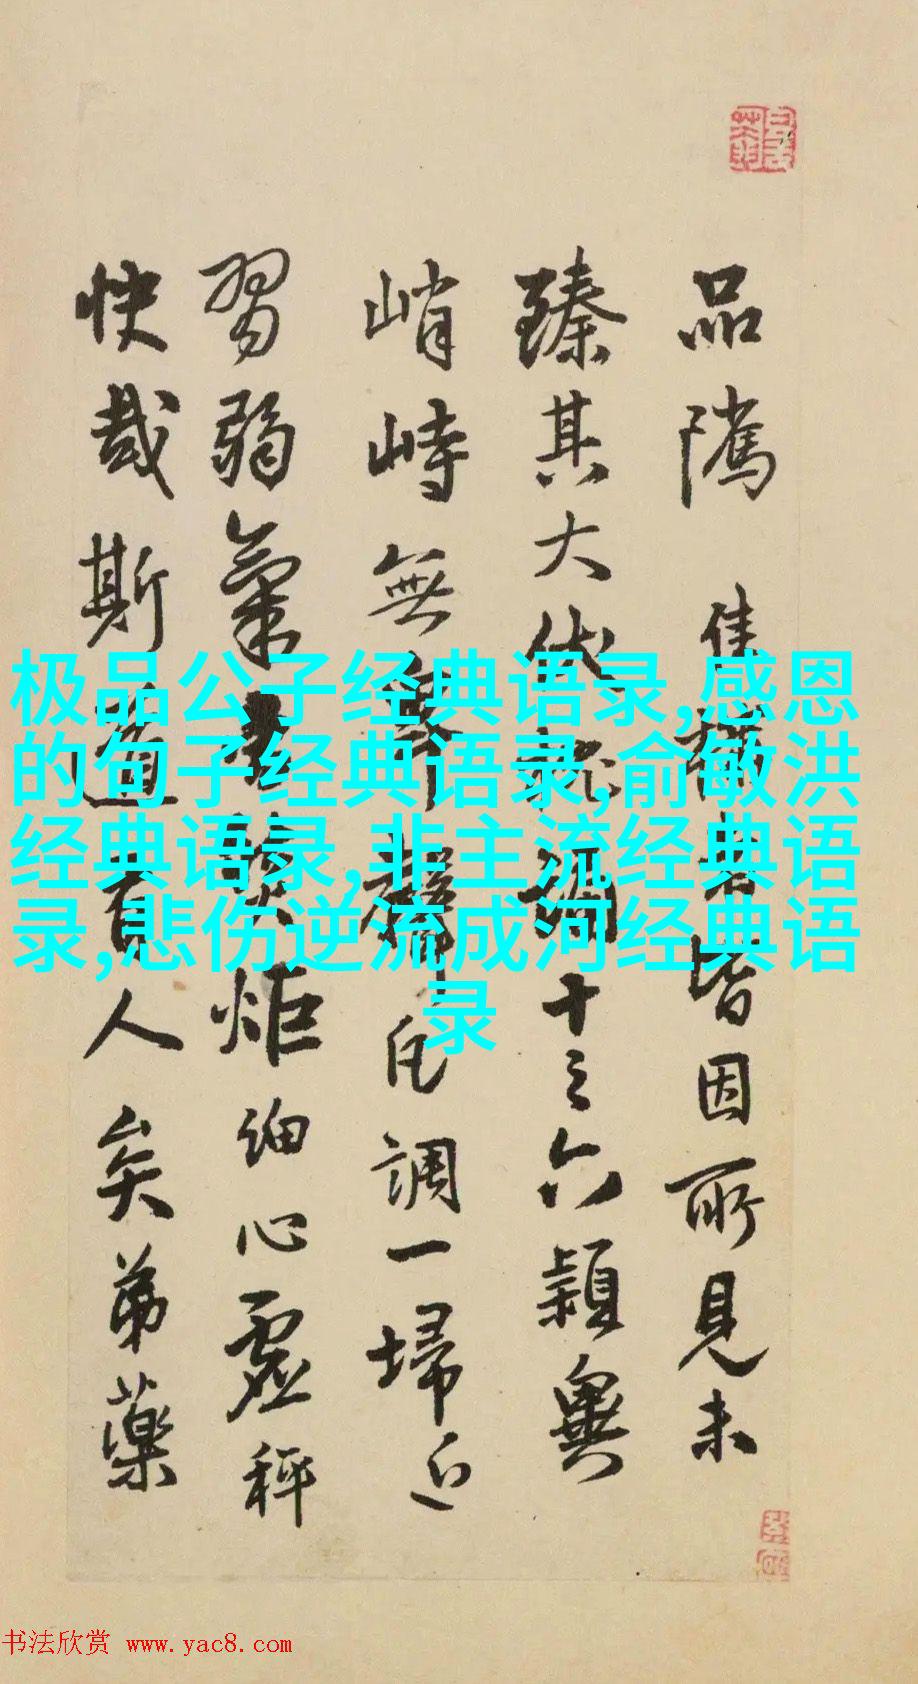 品隲皆因所見未
臻其大十之六穎異
峭峙無調一掃近
習弱氣炬細心虛秤
快哉斯道有人矣弟藥
极品公子经典语录,感恩
的句子经典语录,俞敏洪
经典语录,非主流经典语
录,悲伤逆流成河经典语
录
书法欣赏 www.yac8.com